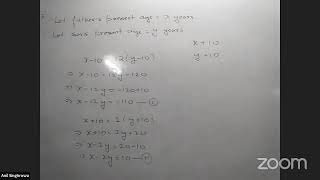 Let father's present age = x years.
Let sons present age = y years
x+10
y+10
x-10 = 12(y-10)
⇒ x-10 = 12y-120
⇒ x-12y = -120+10
⇒ x-12y = -110 — (i)
x+10 = 2(y+10)
⇒ x+10 = 2y+20
⇒ x-2y = 20-10
⇒ x-2y = 10 — (ii)
Anil Singhrowa
zoom